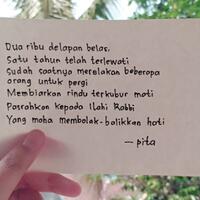 Dua ribu delapan belas,
Satu tahun telah terlewati
Sudah saatnya merelakan beberapa
orang untuk pergi
Membiarkan rindu terkubur mati
Pasrahkan kepada Ilahi Robbi
Yang maha membolak-balikkan hati
— pita